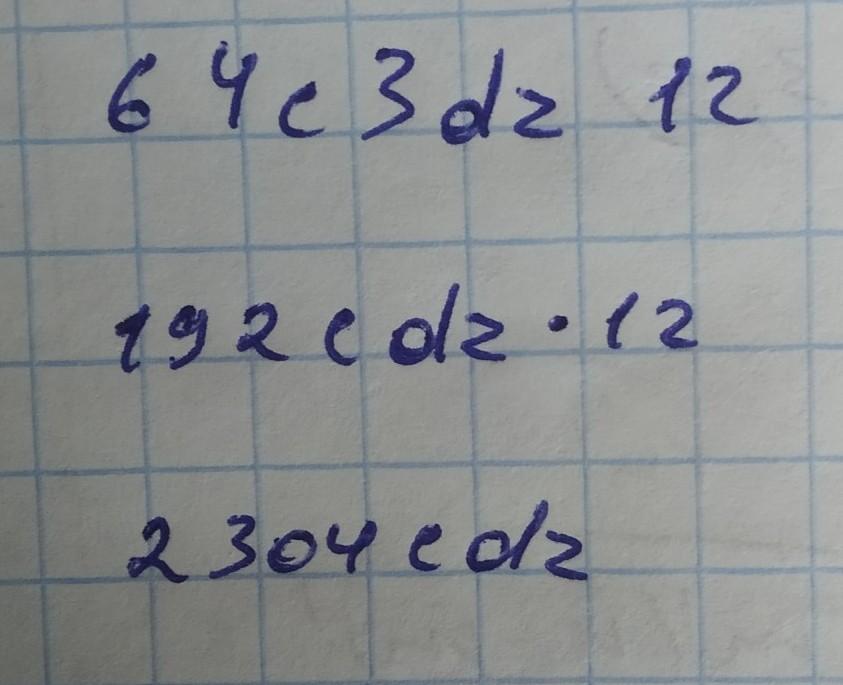 64c3dz 12
192cdz·12
2304cdz